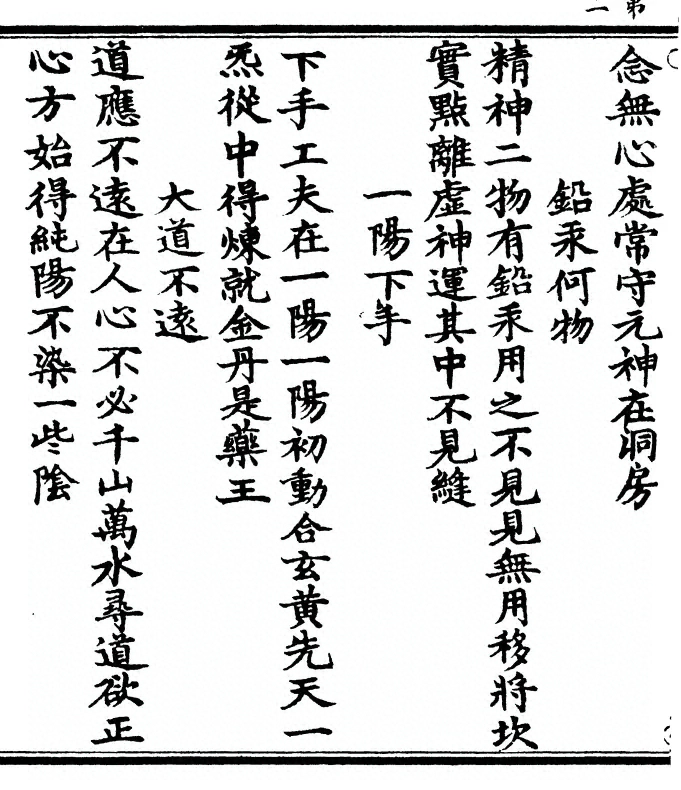 第二
念無心處常守元神在洞房
鉛汞何物
精神二物有鉛汞用之不見見無用移將坎
實點離虛神運其中不見縫
一陽下手
下手工夫在一陽一陽初動合玄黃先天一
炁從中得煉就金丹是藥王
大道不遠
道應不遠在人心不必千山萬水尋道欲正
心方始得純陽不染一些陰